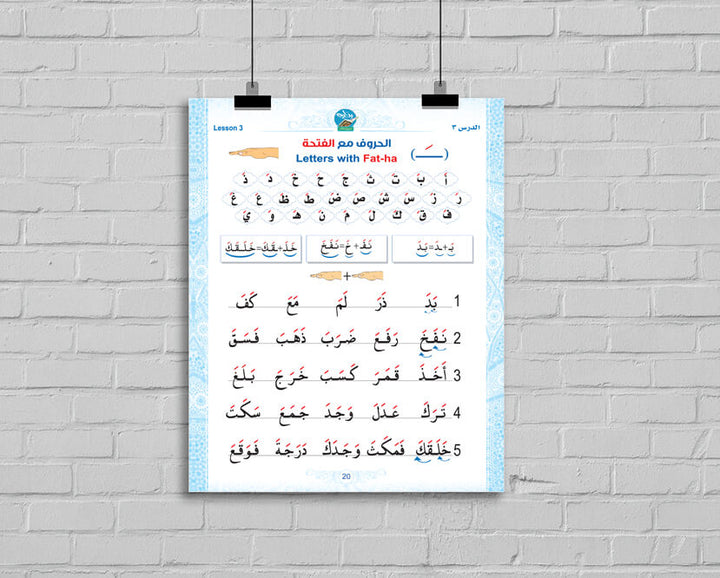 الدرس ٣ Lesson 3
الحروف مع الفتحة
Letters with Fat-ha
( ـَ )
أَ بَ تَ ثَ جَ حَ خَ دَ ذَ
رَ زَ سَ شَ صَ ضَ طَ ظَ عَ غَ
فَ قَ كَ لَ مَ نَ هَـ وَ يَ
يَـ+ـدَ=يَدَ نَفَـ+ـخَ=نَفَخَ خَلَـ+ـقَكَ=خَلَقَكَ
+
1 يَدَ ذَرَ لَمَ مَعَ كَفَ
2 نَفَخَ رَفَعَ ضَرَبَ ذَهَبَ فَسَقَ
3 أَخَذَ قَمَرَ كَسَبَ خَرَجَ بَلَغَ
4 تَرَكَ عَدَلَ وَجَدَ جَمَعَ سَكَتَ
5 خَلَقَكَ فَمَكَثَ وَجَدَكَ دَرَجَةَ فَوَقَعَ
20